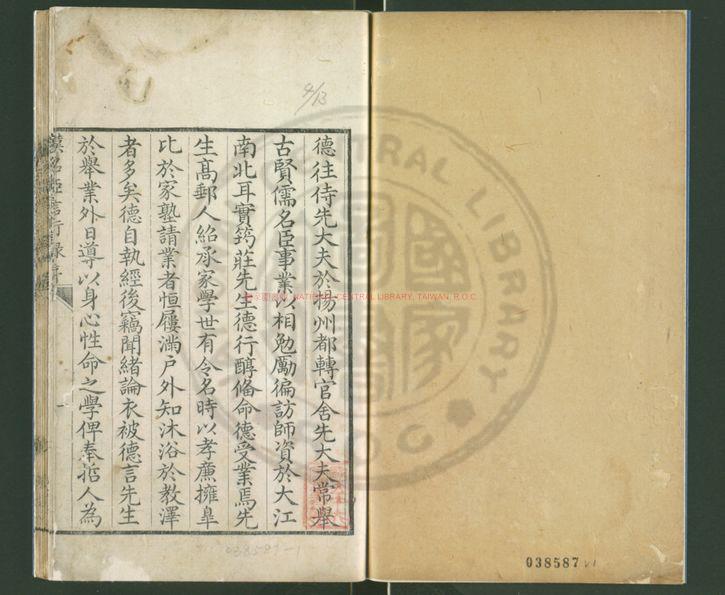 德往侍先大夫於揚州都轉官舍先大夫常舉
古賢儒名臣事業以相勉勵徧訪師資於大江
南北耳實筠莊先生德行醇備命德受業焉先
生髙郵人紹承家學世有令名時以孝廉擁臯
比於家塾請業者恒屨滿戶外知沐浴於教澤
者多矣德自執經後竊聞緒論衣被德言先生
於舉業外日導以身心性命之學俾奉哲人為
言行錄序
一
4/13
038587-1
038587
CENTRAL LIBRARY
R.O.C
NATIONAL CENTRAL LIBRARY, TAIWAN, R.O.C